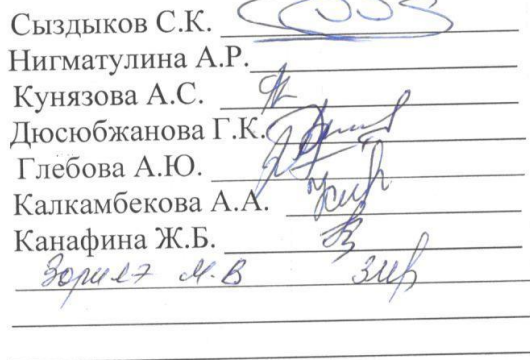 Сыздыков С.К.
Нигматулина А.Р.
Кунязова А.С.
Дюсюбжанова Г.К.
Глебова А.Ю.
Калкамбекова А.А.
Канафина Ж.Б.
М.В